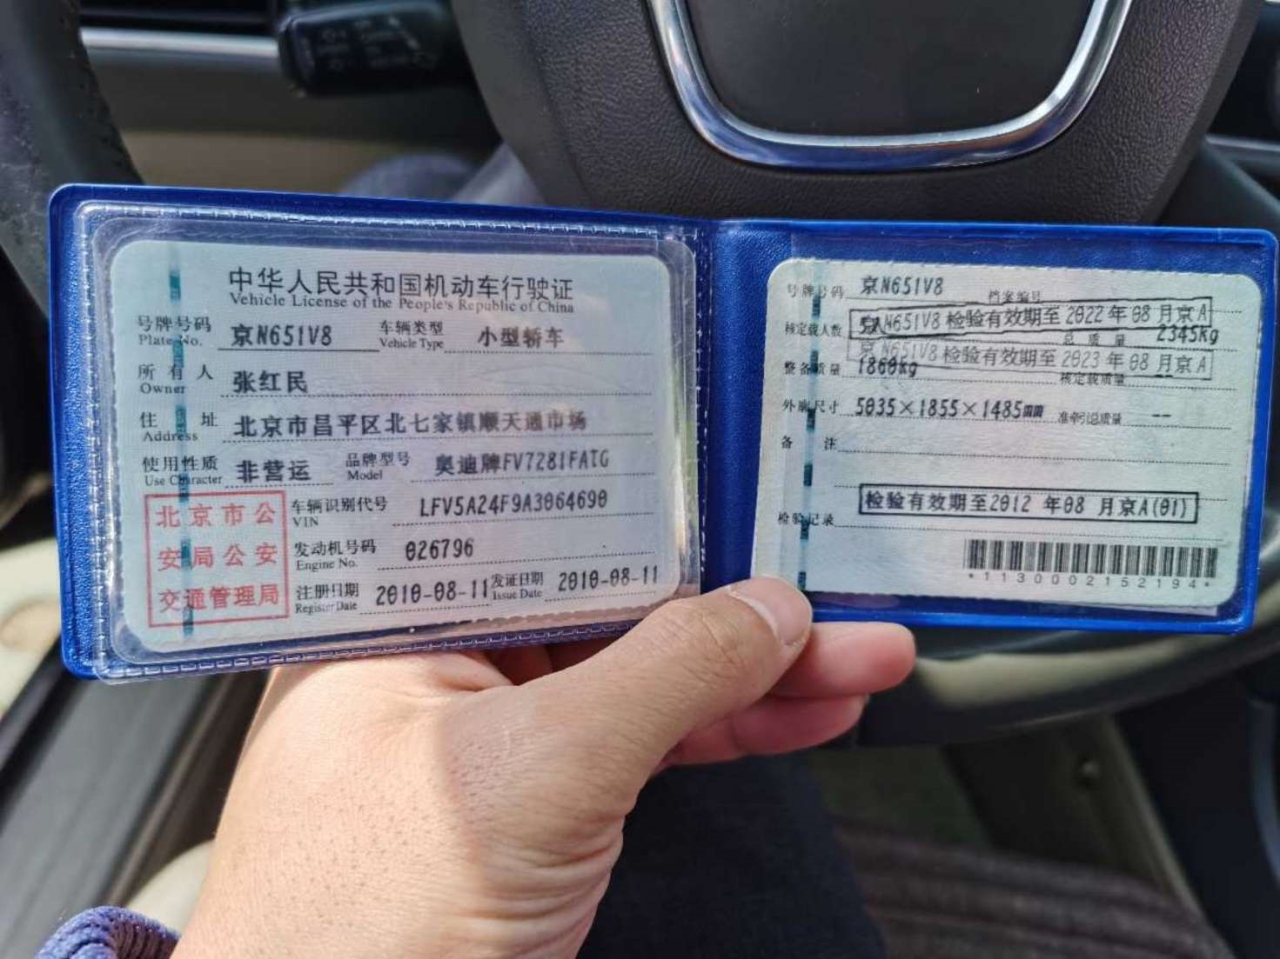 中华人民共和国机动车行驶证
Vehicle License of the People's Republic of China
号牌号码 京N651V8 车辆类型 小型轿车
Plate No. Vehicle Type
所有人 张红民
Owner
住址 北京市昌平区北七家镇顺天通市场
Address
使用性质 非营运 品牌型号 奥迪牌FV7281FATG
Use Character Model
北京市公
安局公安
交通管理局
车辆识别代号 LFV5A24F9A3064690
VIN
发动机号码 026796
Engine No.
注册日期 2010-08-11 发证日期 2010-08-11
Register Date Issue Date
号牌号码 京N651V8 档案编号
京N651V8 检验有效期至 2022 年 08 月京A
核定载人数 总质量 2345kg
京N651V8 检验有效期至 2023 年 08 月京A
整备质量 1860kg 核定载质量 --
外廓尺寸 5035×1855×1485mm 准牵引总质量 --
备注
检验有效期至2012 年08 月京A(01)
检验记录
*1130002152194*